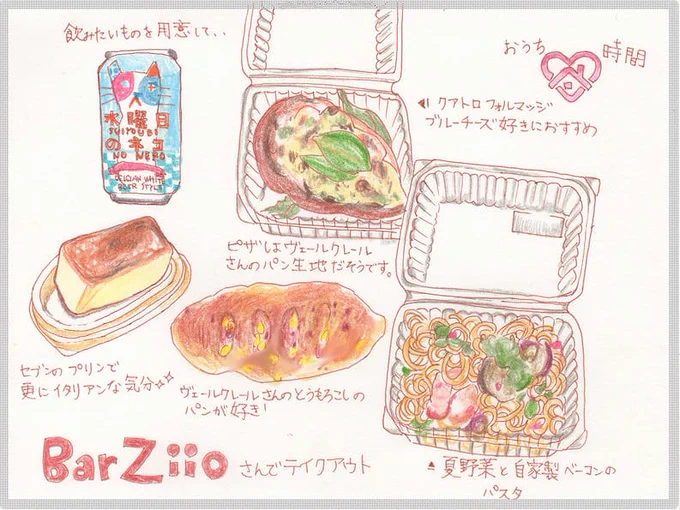 飲みたいものを用意して、、
おうち
時間
水曜日
SUIYOUBI
のネコ
NO NEKO
BELGIAN WHITE
BEER STYLE
クアトロフォルマッジ
ブルーチーズ好きにおすすめ
ピザはヴェールクレール
さんのパン生地だそうです。
セブンのプリンで
更にイタリアンな気分
ヴェールクレールさんのとうもろこしの
パンが好き!
BarZiio さんでテイクアウト
夏野菜と自家製ベーコンの
パスタ